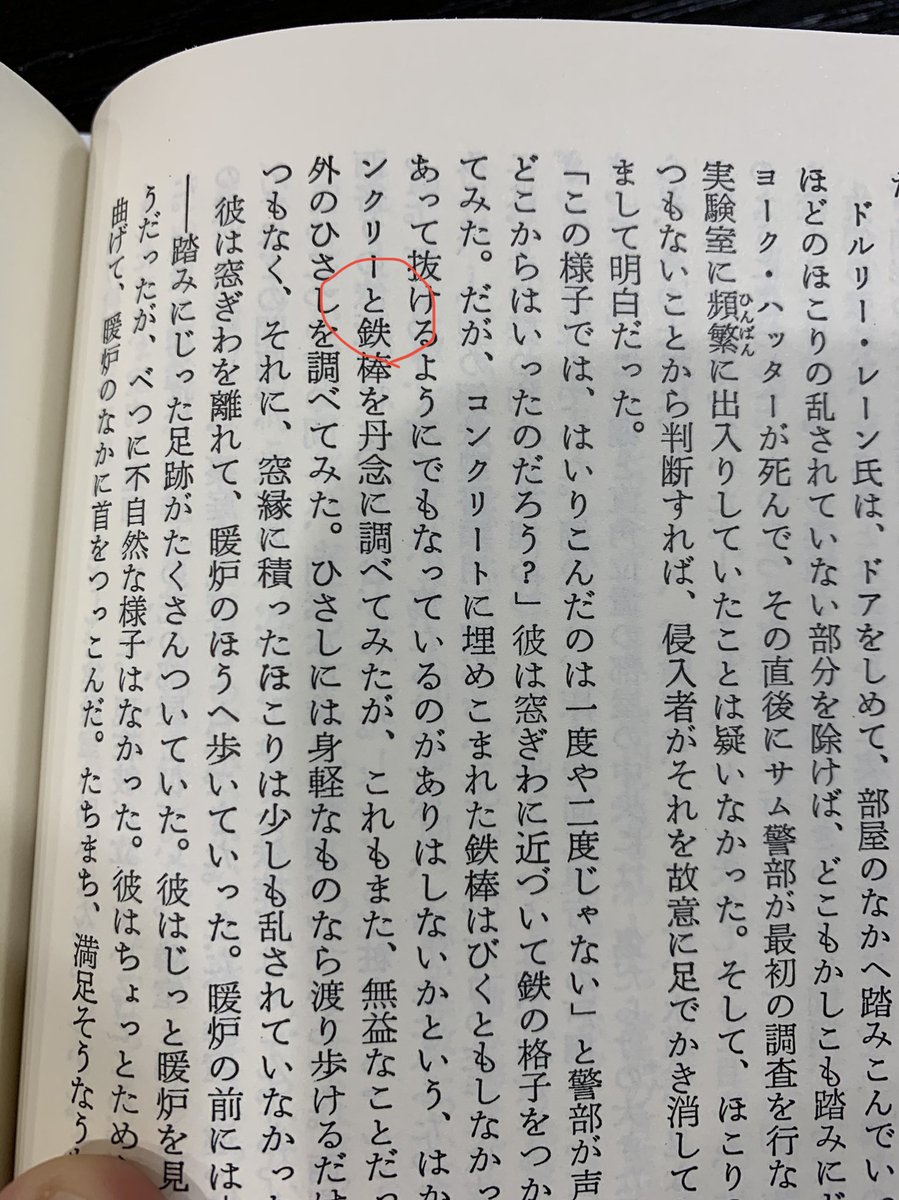 ドルリー・レーン氏は、ドアをしめて、部屋のなかへ踏みこんでい
ほどのほこりの乱されていない部分を除けば、どこもかしこも踏みに
ヨーク・ハッターが死んで、その直後にサム警部が最初の調査を行な
実験室に頻繁ひんぱんに出入りしていたことは疑いなかった。そして、ほこり
つもないことから判断すれば、侵入者がそれを故意に足でかき消して
まして明白だった。
「この様子では、はいりこんだのは一度や二度じゃない」と警部が声
どこからはいったのだろう?」彼は窓ぎわに近づいて鉄の格子をつか
てみた。だが、コンクリートに埋めこまれた鉄棒はびくともしなかっ
あって抜けるようにでもなっているのがありはしないかという、はか
ンクリーと鉄棒を丹念に調べてみたが、これもまた、無益なことだっ
外のひさしを調べてみた。ひさしには身軽なものなら渡り歩けるだけ
つもなく、それに、窓縁に積ったほこりは少しも乱されていなかっ
彼は窓ぎわを離れて、暖炉のほうへ歩いていった。暖炉の前には
――踏みにじった足跡がたくさんついていた。彼はじっと暖炉を見
うだったが、べつに不自然な様子はなかった。彼はちょっとため
曲げて、暖炉のなかに首をつっこんだ。たちまち、満足そうなう